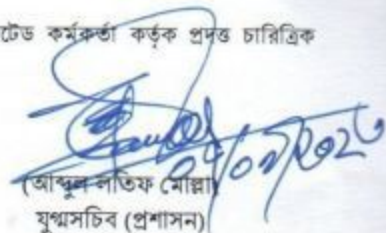 টেড কর্মকর্তা কর্তৃক প্রদত্ত চারিত্রিক
(আব্দুল লতিফ মোল্লা)
যুগ্মসচিব (প্রশাসন)